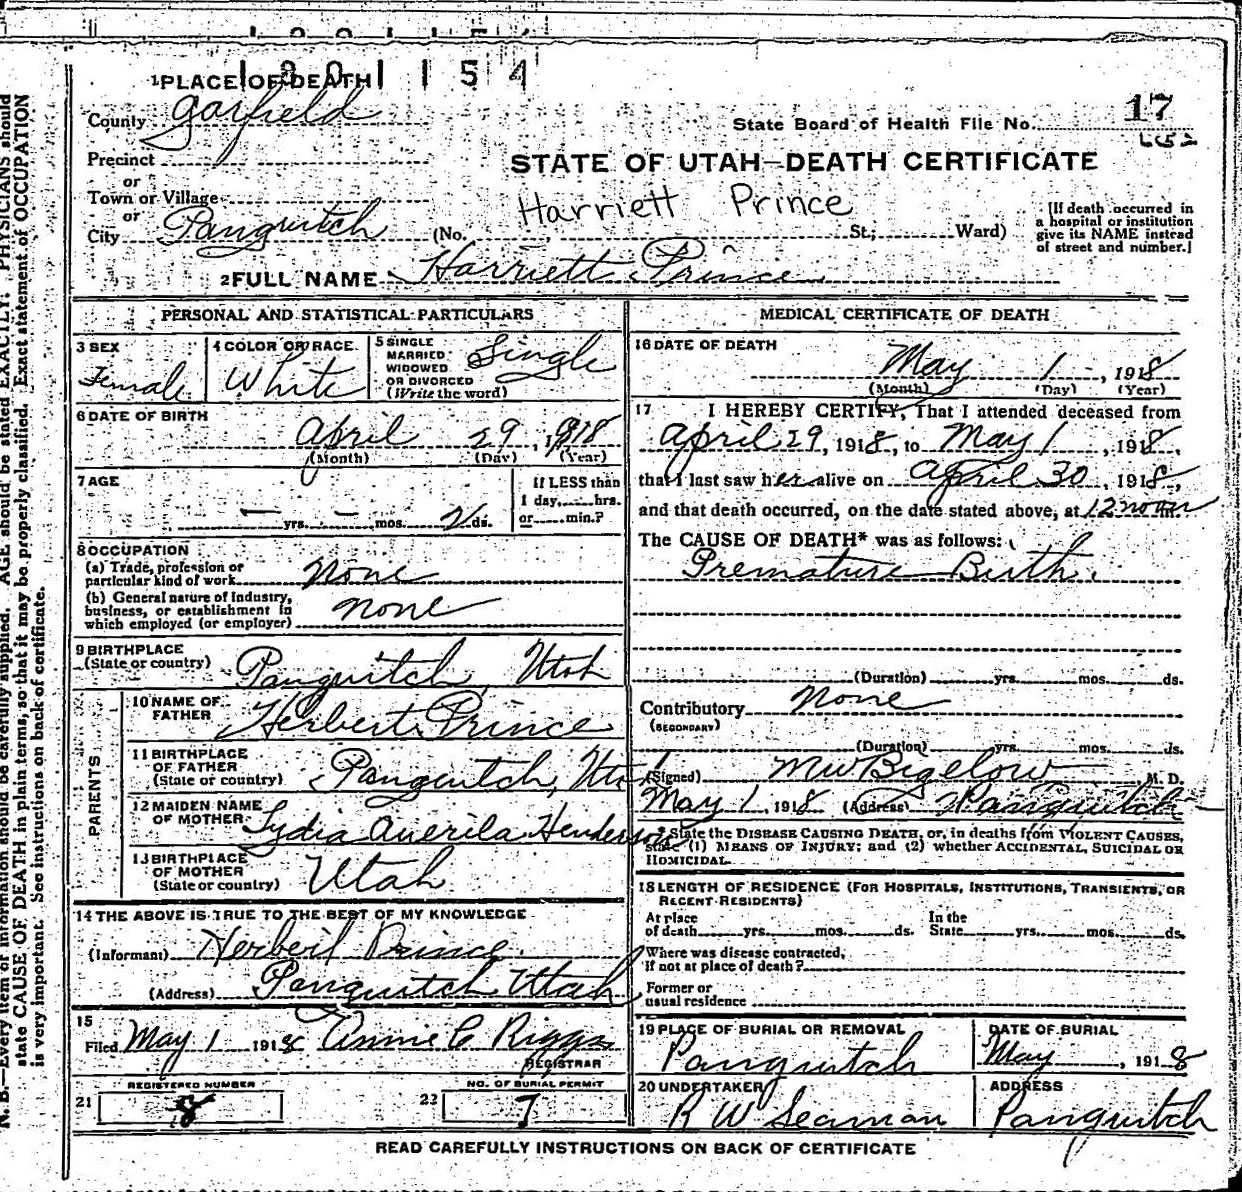 1 PLACE OF DEATH 1201154
County Garfield
State Board of Health File No. 17
652
Precinct
or
STATE OF UTAH—DEATH CERTIFICATE
Town or Village
or
Harriett Prince
City Panguitch (No. St.; Ward)
[If death occurred in
a hospital or institution
give its NAME instead
of street and number.]
2 FULL NAME Harriett Prince
PERSONAL AND STATISTICAL PARTICULARS
3 SEX
Female
4 COLOR OR RACE
White
5 SINGLE
MARRIED
WIDOWED
OR DIVORCED
(Write the word)
Single
6 DATE OF BIRTH
April 29, 1918
(Month) (Day) (Year)
7 AGE
— yrs. — mos. 2 ds.
If LESS than
1 day, hrs.
or min.?
8 OCCUPATION
(a) Trade, profession or
particular kind of work None
(b) General nature of industry,
business, or establishment in
which employed (or employer) None
9 BIRTHPLACE
(State or country) Panguitch, Utah
PARENTS
10 NAME OF
FATHER Herbert Prince
11 BIRTHPLACE
OF FATHER
(State or country) Panguitch, Uta
12 MAIDEN NAME
OF MOTHER Lydia Averila Henderson
13 BIRTHPLACE
OF MOTHER
(State or country) Utah
14 THE ABOVE IS TRUE TO THE BEST OF MY KNOWLEDGE
(Informant) Herbert Prince
(Address) Panguitch Utah
15
Filed May 1 1918 Annie C Riggs
REGISTRAR
REGISTERED NUMBER
21 8
NO. OF BURIAL PERMIT
22 7
MEDICAL CERTIFICATE OF DEATH
16 DATE OF DEATH
May 1, 1918
(Month) (Day) (Year)
17 I HEREBY CERTIFY, That I attended deceased from
April 29, 1918, to May 1, 1918,
that I last saw her alive on April 30, 1918,
and that death occurred, on the date stated above, at 12 noon m
The CAUSE OF DEATH* was as follows:
Premature Birth.
(Duration) yrs. mos. ds.
Contributory None
(SECONDARY)
(Duration) yrs. mos. ds.
(Signed) M W Bigelow M. D.
May 1, 1918 (Address) Panguitch
* State the DISEASE CAUSING DEATH, or, in deaths from VIOLENT CAUSES,
state (1) MEANS OF INJURY; and (2) whether ACCIDENTAL, SUICIDAL OR
HOMICIDAL.
18 LENGTH OF RESIDENCE (FOR HOSPITALS, INSTITUTIONS, TRANSIENTS, OR
RECENT RESIDENTS)
At place
of death yrs. mos. ds.
In the
State yrs. mos. ds.
Where was disease contracted,
if not at place of death?
Former or
usual residence
19 PLACE OF BURIAL OR REMOVAL
Panguitch
DATE OF BURIAL
May, 1918
20 UNDERTAKER
R W Seaman
ADDRESS
Panguitch
READ CAREFULLY INSTRUCTIONS ON BACK OF CERTIFICATE
N. B.—Every item of information should be carefully supplied. AGE should be stated EXACTLY. PHYSICIANS should
state CAUSE OF DEATH in plain terms, so that it may be properly classified. Exact statement of OCCUPATION
is very important. See instructions on back of certificate.